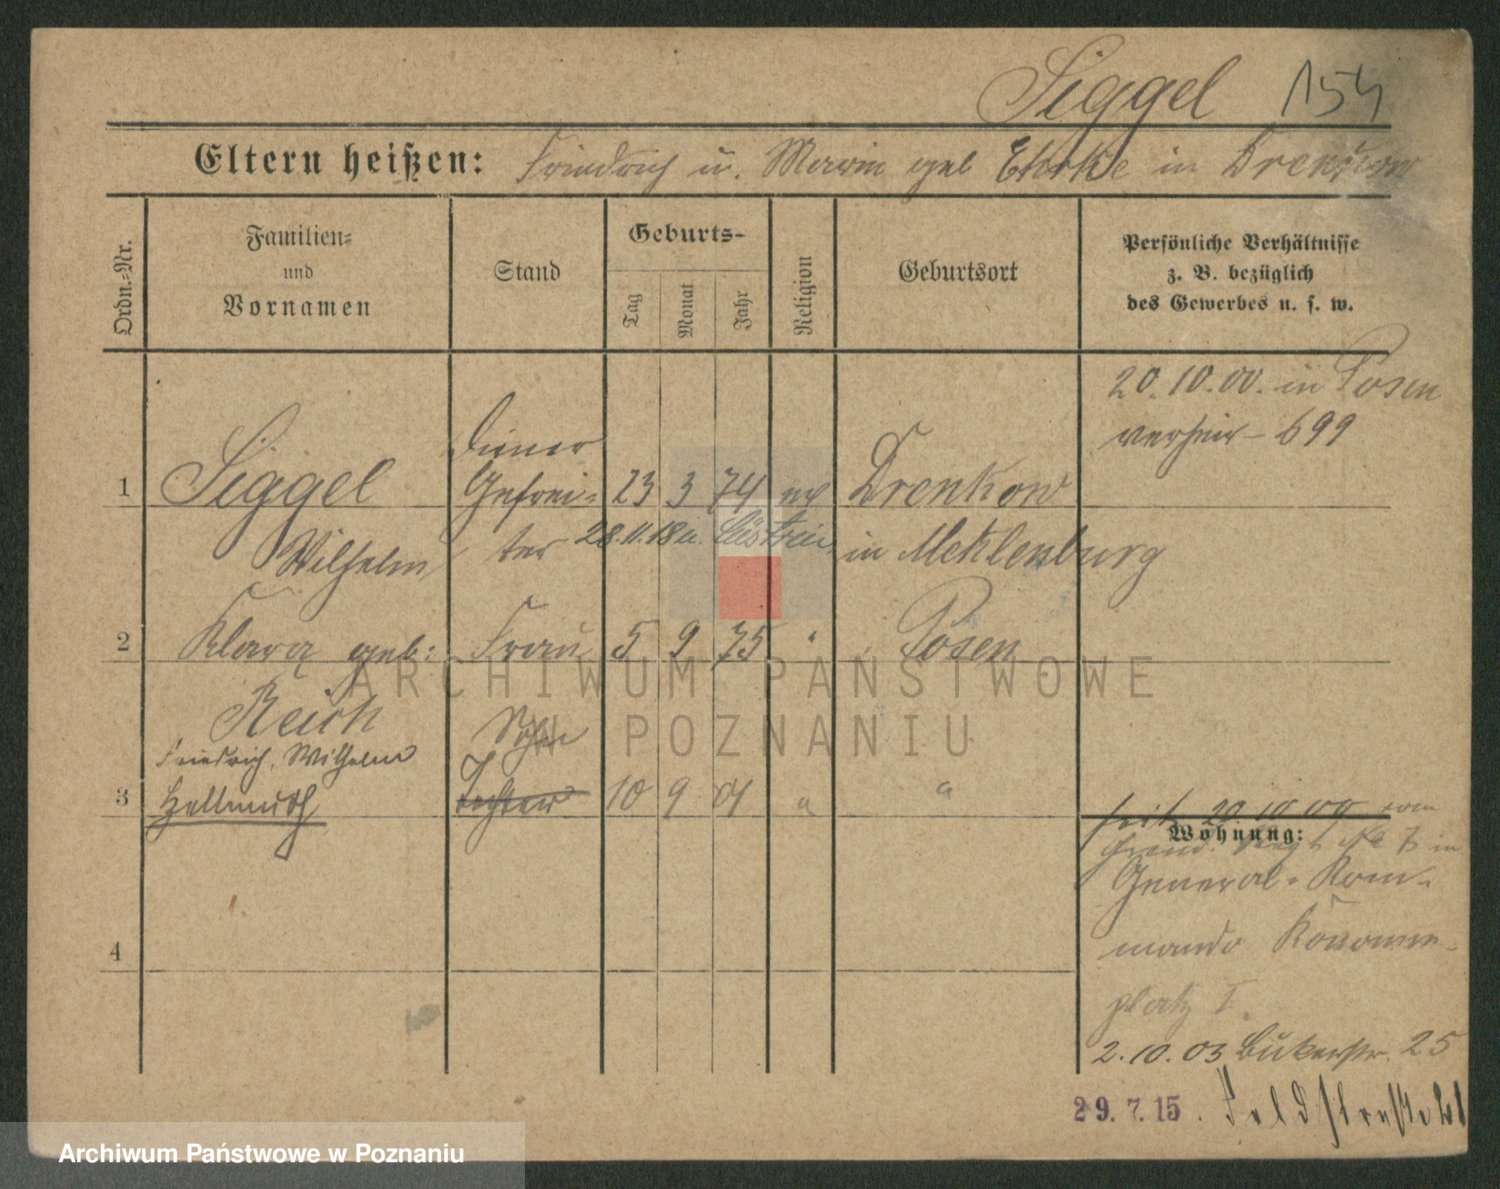 Siggel 154
Eltern heißen: Friedrich u. Marie geb in Drenkow
Ordn.-Nr.
Familien-
und
Vornamen
Stand
Geburts-
Tag
Monat
Jahr
Religion
Geburtsort
Persönliche Verhältnisse
z. B. bezüglich
des Gewerbes u. s. w.
20.10.00. in Posen
verheir- 699
Diener
1 Siggel Gefrei- 23 3 74 ev Drenkow
Wilhelm ter 28.11.18 n. Küstrin in Meklenburg
2 Klara geb: Frau 5 9 75 " Posen
Reich
Sohn
Friedrich, Wilhelm
3 Hellmuth Tochter 10 9 01 " "
seit 20 10 00 vom
Wohnung:
in
General-Kom-
mando
platz I.
2.10.03 Bukerstr. 25
29.7.15. Feldstraße 21
ARCHIWUM PAŃSTWOWE
W POZNANIU
Archiwum Państwowe w Poznaniu